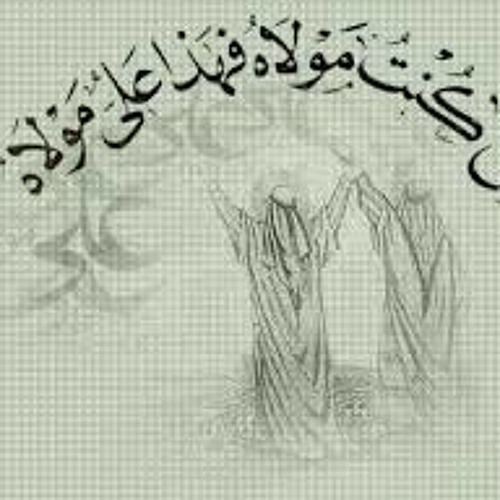 كُنْتُ مَوْلَاهُ فَهَذَا عَلِيٌّ مَوْلَاهُ
علی